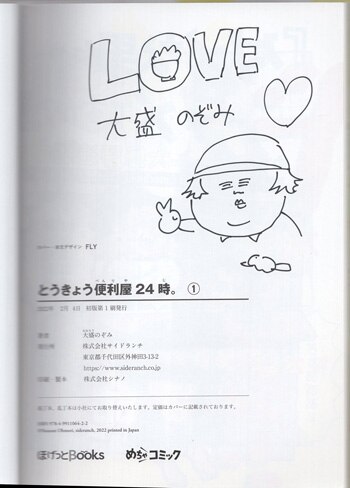 LOVE
大盛 のぞみ
カバー・本文デザイン FLY
とうきょう便利屋24時。 ①
2022年 2月 4日 初版第1刷発行
著者 大盛のぞみ
発行所 株式会社サイドランチ
東京都千代田区外神田3-13-2
https://www.sideranch.co.jp
印刷・製本 株式会社シナノ
乱丁本、落丁本は小社にてお取り替えいたします。定価はカバーに記載されております。
©Nozomi Ohmori, sideranch, 2022 printed in Japan
ほげっとBooks めちゃコミック